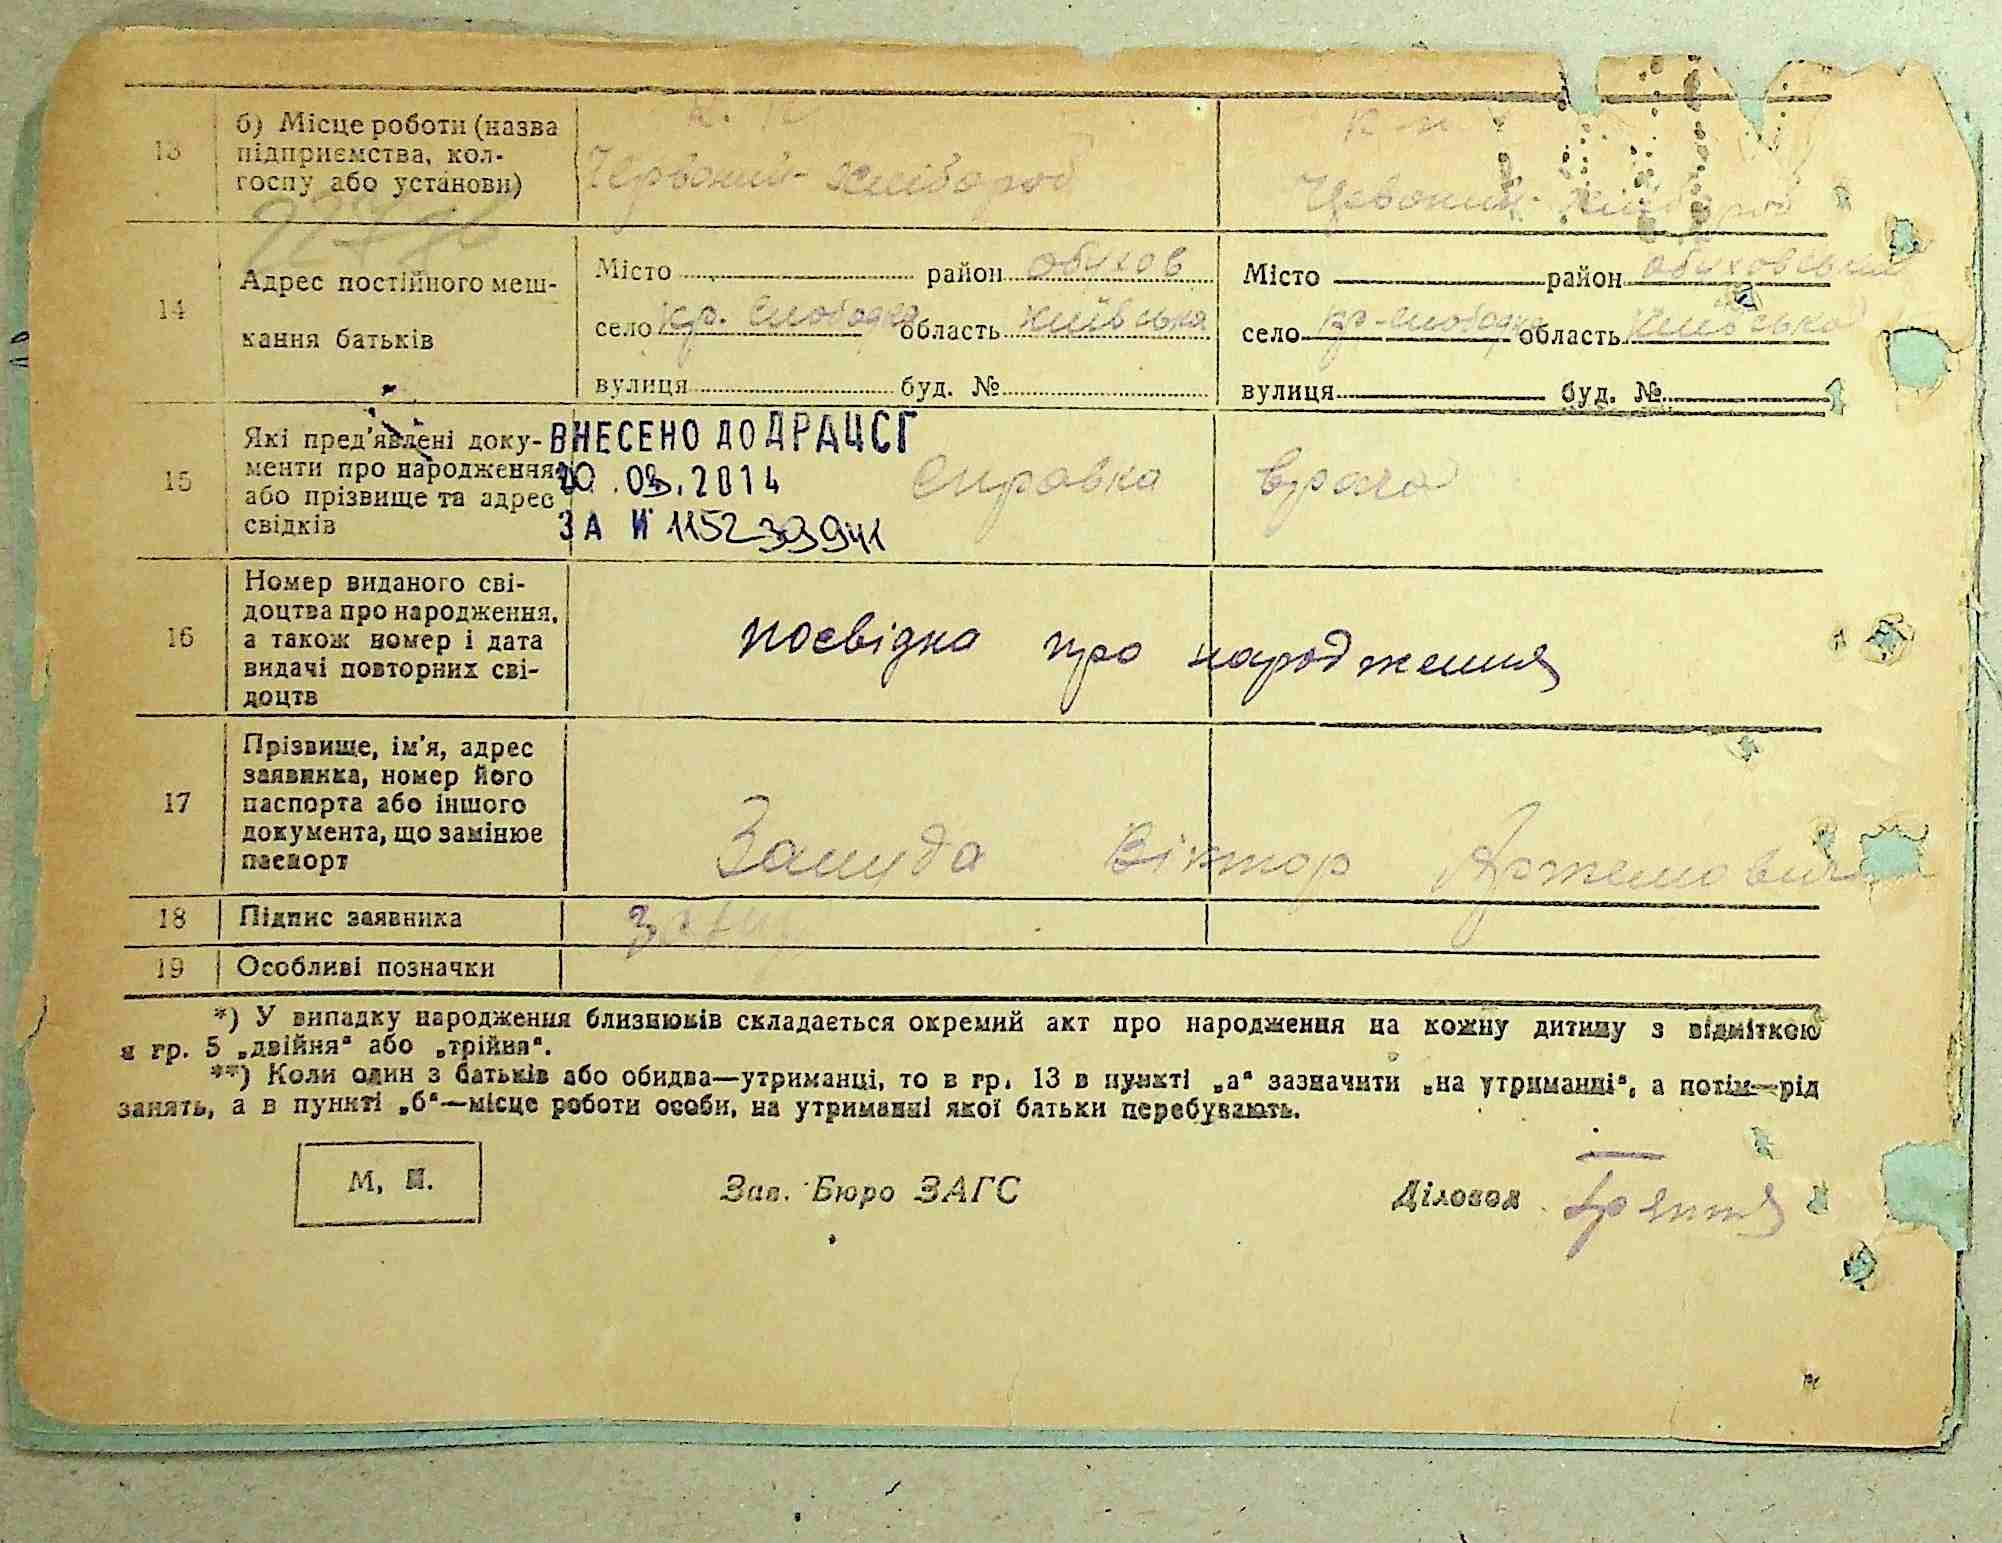 13
б) Місце роботи (назва
підприємства, кол-
госпу або установи)
Червоний-хлібороб
к-п
Червоний-хлібороб
14
Адрес постійного меш-
кання батьків
Місто район Обухов
село Кр. Слободка область Київська
вулиця буд. №
Місто район Обуховський
село Кр-Слободка область Київська
вулиця буд. №
15
Які пред'явлені доку-
менти про народження
або прізвище та адрес
свідків
ВНЕСЕНО ДО ДРАЦСГ
20.03.2014
ЗА № 115239941
Справка врача
16
Номер виданого сві-
доцтва про народження,
а також номер і дата
видачі повторних сві-
доцтв
посвідка про народження
17
Прізвище, ім'я, адрес
заявника, номер його
паспорта або іншого
документа, що замінює
паспорт
Віктор Артемович
18
Підпис заявника
19
Особливі позначки
*) У випадку народження близнюків складається окремий акт про народження на кожну дитину з відміткою
в гр. 5 „двійня“ або „трійня“.
**) Коли один з батьків або обидва—утриманці, то в гр. 13 в пункті „а“ зазначити „на утриманні“, а потім—рід
занять, а в пункті „б“—місце роботи особи, на утриманні якої батьки перебувають.
М. П.
Зав. Бюро ЗАГС
Діловод